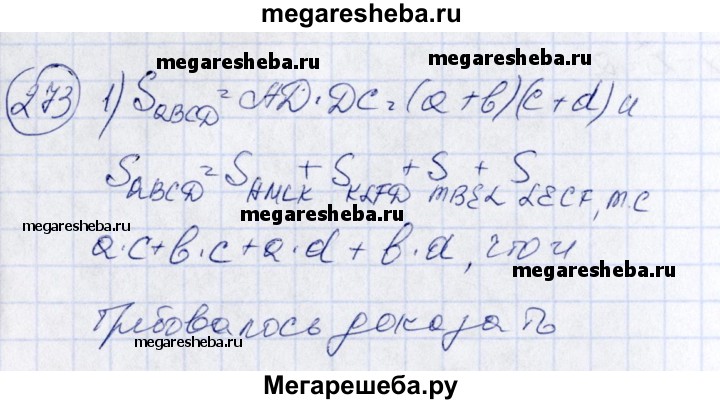 megaresheba.ru
megaresheba.ru
megaresheba.ru
273 1) S ABCD = AD · DC = (a + b)(c + d) и
S ABCD = S AMLK + S KLFD + S MBEL + S LECF, т.е
megaresheba.ru
megaresheba.ru
a·c + b·c + a·d + b·d, что и
megaresheba.ru
требовалось доказать
megaresheba.ru
Мегарешеба.ру